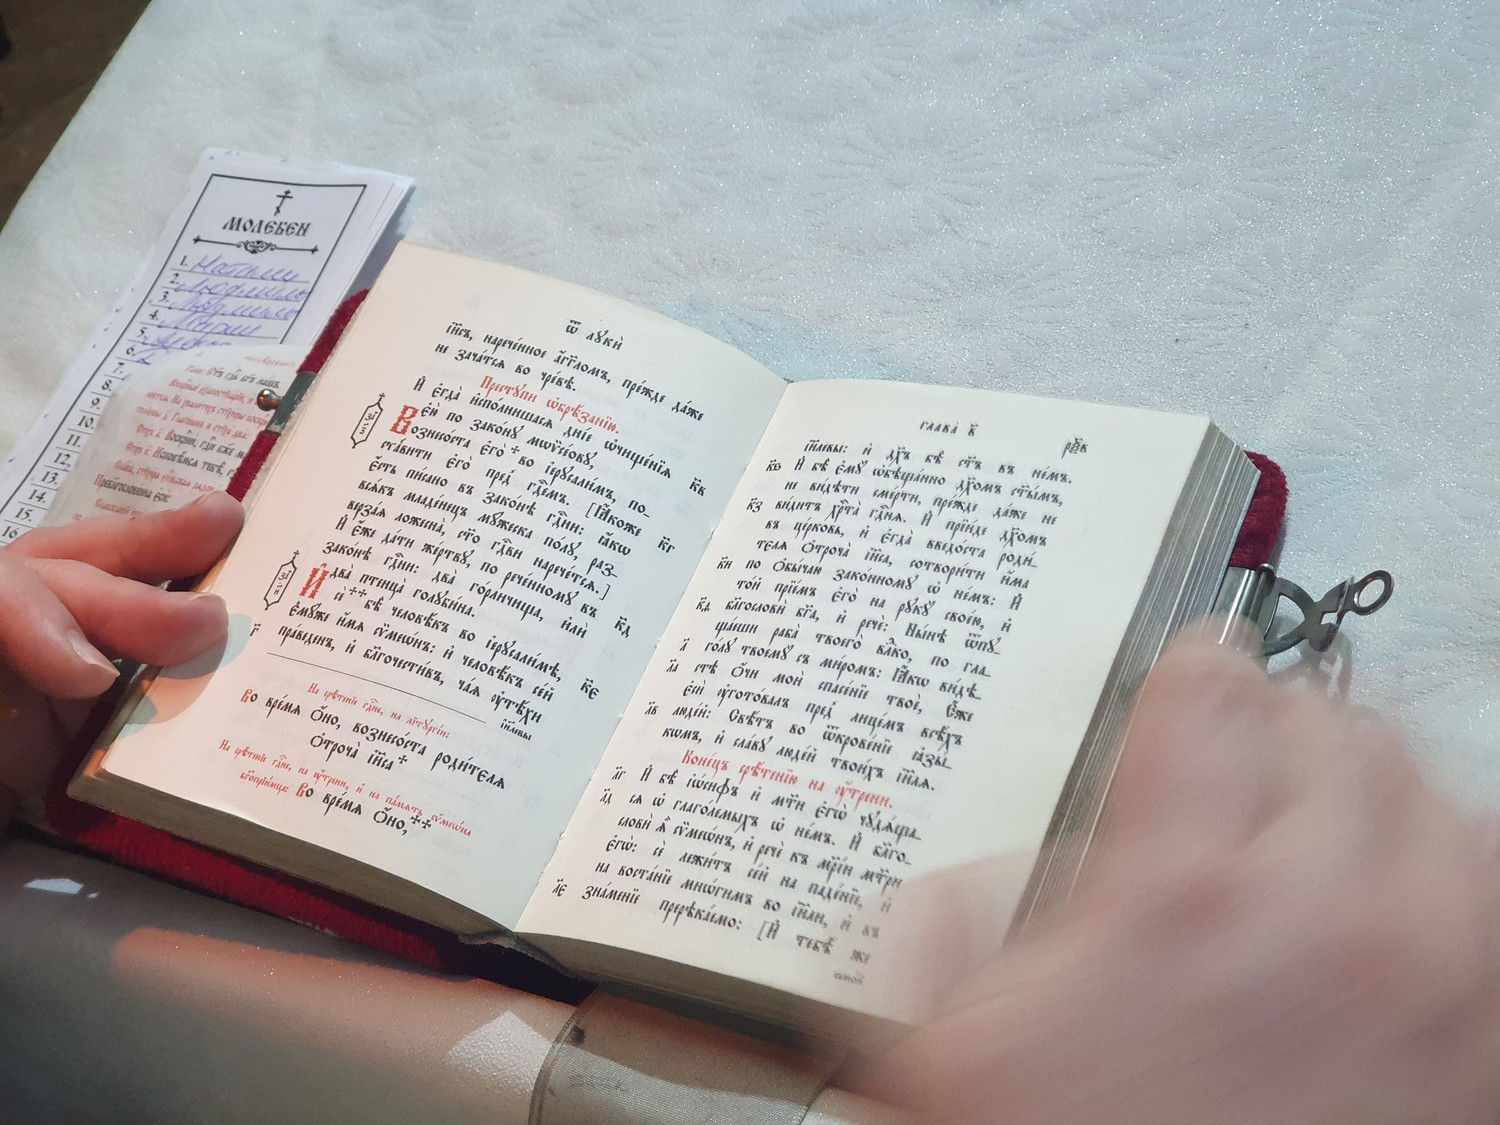 МОЛЕБЕН
1. Наталии
2. Людмилы
3. Людмилы
4. Марии
5.
6.
7.
8.
9.
10.
11.
12.
13.
14.
15.
16.
Ѿ лꙋкѝ
і҆и҃съ, нарече́нное а҆́гг҃ломъ, пре́жде да́же
не зача́тсѧ во чре́вѣ.
Престꙋпи ѡ҆брѣ́занїю.
И҆ є҆гда̀ и҆спо́лнишасѧ дні́е ѡ҆чище́нїѧ к҃в
є҆ю̀ по зако́нꙋ мѡѷсе́овꙋ,
Вознесо́ста є҆го̀ + во і҆ерꙋсали́мъ, по-
ста́вити є҆го̀ пред̾ гд҇емъ. [Ꙗ҆́коже к҃г
є҆́сть пи́сано въ зако́нѣ гд҇ни: ꙗ҆́кѡ
всѧ́къ младе́нецъ мꙋ́жеска по́лꙋ, раз-
верза́ѧ ложесна̀, ст҃о гд҇ви нарече́тсѧ.]
И҆ є҆́же да́ти же́ртвꙋ, по рече́нномꙋ въ к҃д
зако́нѣ гд҇ни: два̀ го́рличища, и҆лѝ
два̀ птенца̀ голꙋби̑на.
И҆ сѐ ++ бѣ̀ человѣ́къ во і҆ерꙋсали́мѣ, к҃є
є҆мꙋ́же и҆́мѧ сѷмеѡ́нъ: и҆ человѣ́къ се́й
г҃ пра́веденъ, и҆ бл҃гочести́въ, ча́ѧ ᲂу҆тѣ́хи
і҆и҃левы
На срѣ́тенїе гд҇не, на лїтꙋргі́и:
Во вре́мѧ ѻ҆́но, вознесо́ста роди́телѧ
ѻ҆троча̀ і҆и҃са +
На срѣ́тенїе гд҇не, на ᲂу҆́трени, и҆ на па́мѧть сѷмеѡ́на
бг҃опрїи́мца: Во вре́мѧ ѻ҆́но, ++
глава̀ в҃
р҃в
і҆и҃левы: и҆ дх҃ъ бѣ̀ ст҃ъ въ не́мъ.
к҃ѕ И҆ бѣ̀ є҆мꙋ̀ ѡ҆бѣща́нно дх҃омъ ст҃ы́мъ,
не ви́дѣти сме́рти, пре́жде да́же не
к҃з ви́дитъ хрⷭ҇та̀ гд҇нѧ. И҆ прїи́де дх҃омъ
въ це́рковь, и҆ є҆гда̀ введо́ста роди́-
телѧ ѻ҆троча̀ і҆и҃са, сотвори́ти и҆̀ма
к҃и по ѻ҆бы́чаю зако́нномꙋ ѡ҆ не́мъ: И҆
то́й прїе́мъ є҆го̀ на рꙋ́кꙋ свое́ю, и҆
к҃ѳ блг҃ословѝ бг҃а, и҆ речѐ: Ны́нѣ ѿпꙋ-
ща́еши раба̀ твоего̀ влⷣко, по гла-
л҃ го́лꙋ твоемꙋ̀ съ ми́ромъ: Ꙗ҆́кѡ ви́дѣ-
л҃а стѣ ѻ҆́чи моѝ спасе́нїе твоѐ, Є҆́же
є҆сѝ ᲂу҆гото́валъ пред̾ лице́мъ всѣ́хъ
л҃в люде́й: Свѣ́тъ во ѿкрове́нїе ꙗ҆зы́-
кѡмъ, и҆ сла́вꙋ люде́й твои́хъ і҆и҃лѧ.
Коне́цъ срѣ́тенїю на ᲂу҆́трени.
л҃г И҆ бѣ̀ і҆ѡ́сифъ и҆ мт҃и є҆гѡ̀ чꙋдѧ̑ща-
л҃д сѧ ѡ҆ глаго́лемыхъ ѡ҆ не́мъ. И҆ блг҃о-
словѝ ѧ҆̀ сѷмеѡ́нъ, и҆ речѐ къ мр҃і́и мт҃ри
є҆гѡ̀: сѐ лежи́тъ се́й на паде́нїе, и҆
на воста́нїе мнѡ́гимъ во і҆и҃ли, и҆ въ
л҃є зна́менїе прерѣка́емо: [И҆ тебѣ́ же